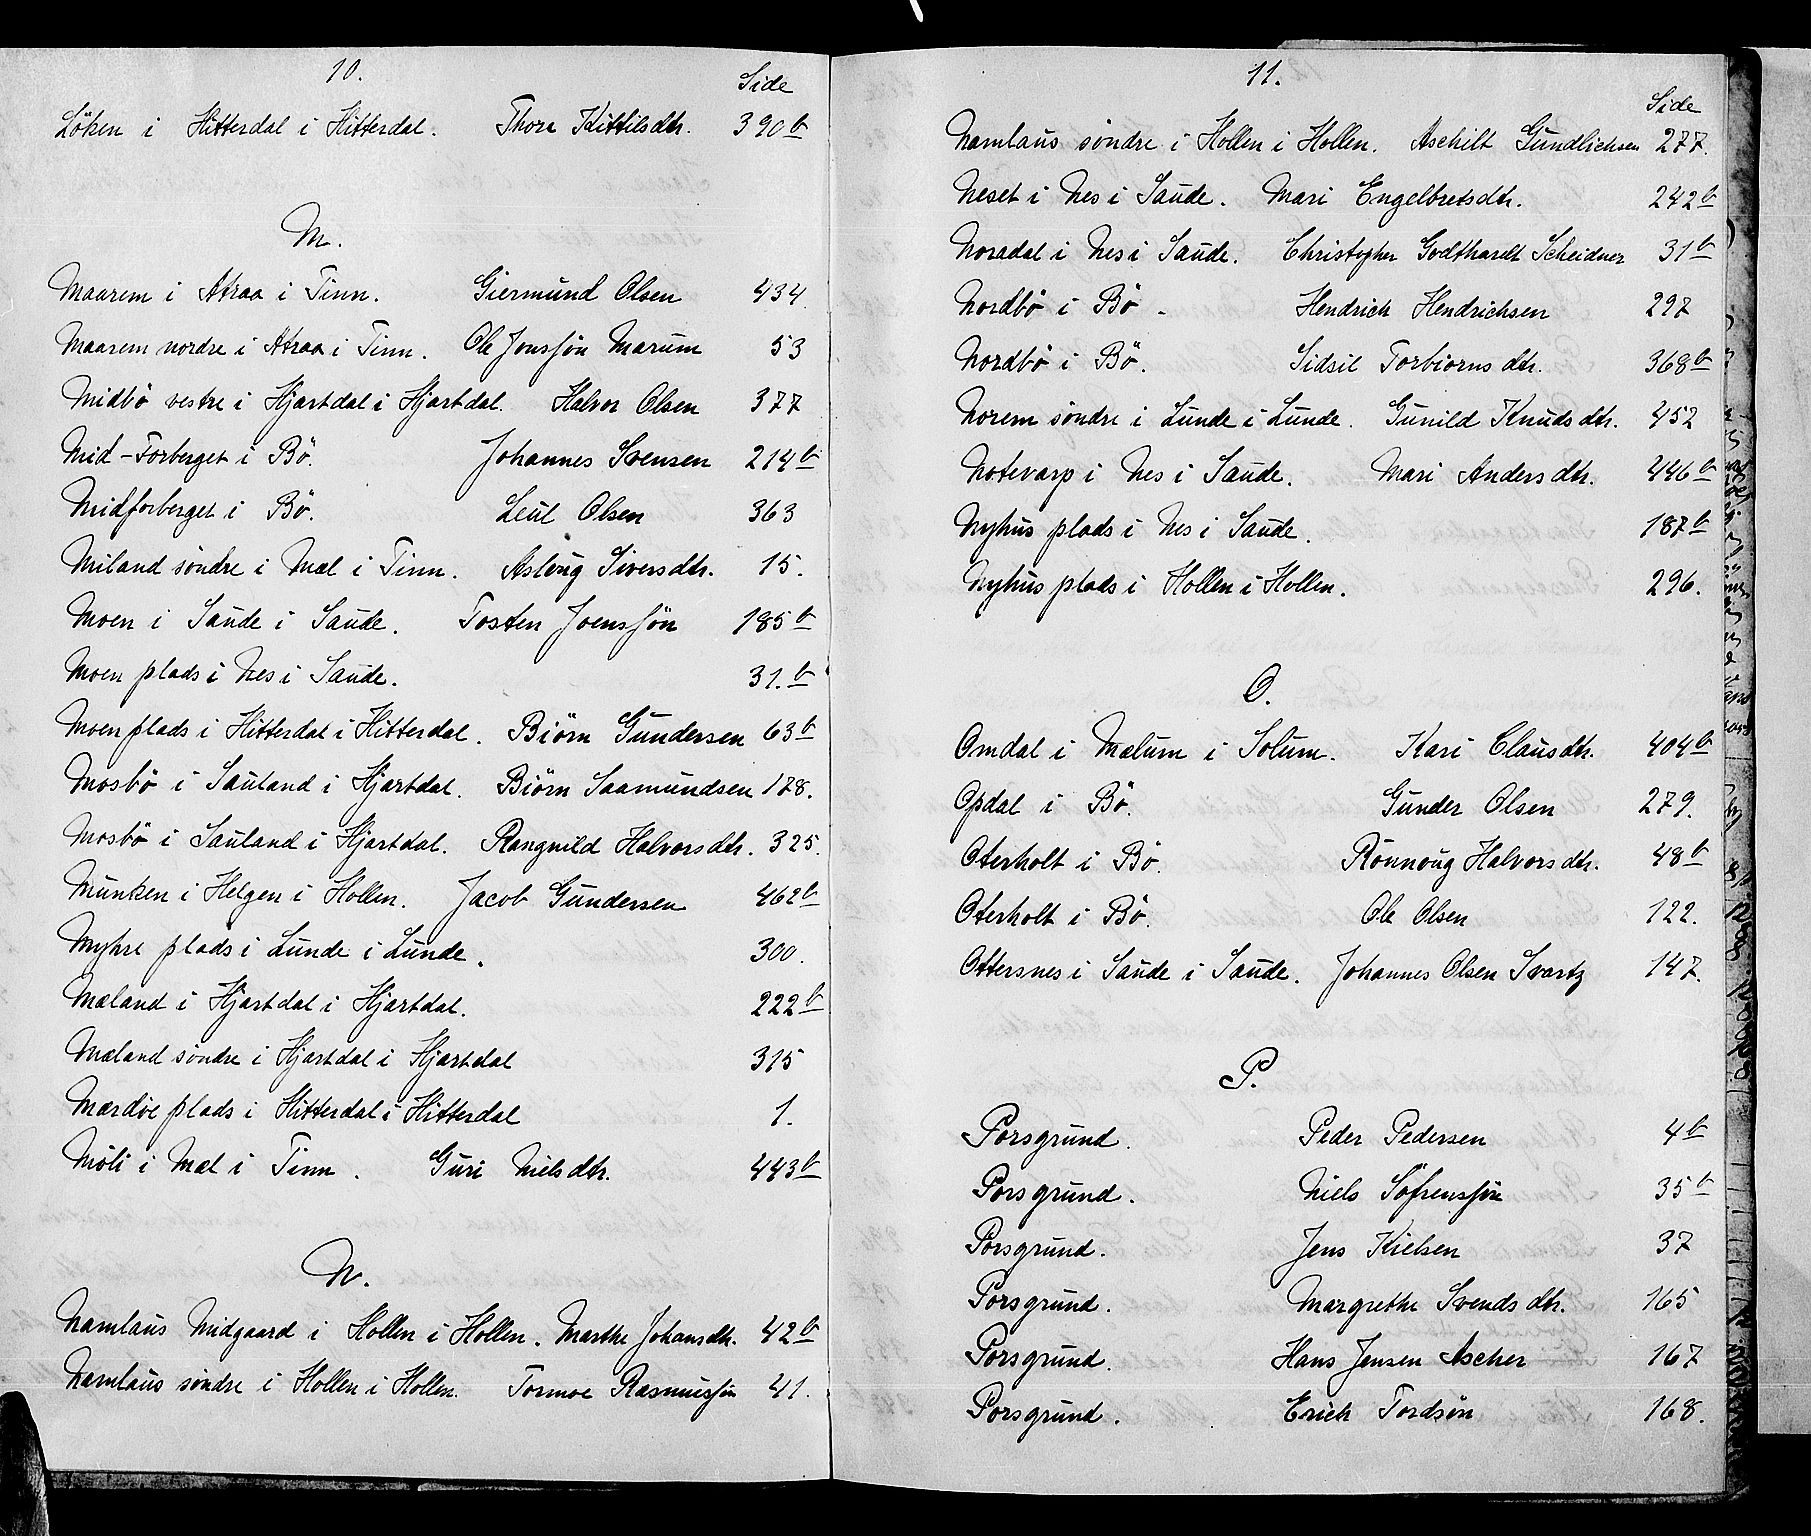 10.
Side
Löken i Hitterdal i Hitterdal. Thore Kittilsdtr. 390 b
M.
Maarem i Atraa i Tinn. Giermund Olsen 434.
Maarem nordre i Atraa i Tinn. Ole Jonssøn Marum 53
Midbö vestre i Hjartdal i Hjartdal. Halvor Olsen 377
Mid-Forberget i Bö. Johannes Svensen 214 b
Midforberget i Bö. Leul Olsen 363
Miland söndre i Mæl i Tinn. Asloug Siversdtr. 15.
Moen i Saude i Saude. Tosten Joenssøn 185 b
Moen plads i Nes i Saude. 31. b
Moen plads i Hitterdal i Hitterdal. Biörn Gundersen 63 b
Mosbö i Sauland i Hjartdal. Biörn Saamundsen 178.
Mosbö i Sauland i Hjartdal. Rangnild Halvorsdtr. 325.
Munken i Helgen i Hollen. Jacob Gundersen 462 b
Myhre plads i Lunde i Lunde. 300.
Mæland i Hjartdal i Hjartdal. 222 b
Mæland söndre i Hjartdal i Hjartdal 315
Mærdöe plads i Hitterdal i Hitterdal 1.
Möli i Mæl i Tinn. Guri Nielsdtr. 443 b
N.
Namlaus Midgaard i Hollen i Hollen. Marthe Johansdtr. 42 b
Namlaus söndre i Hollen i Hollen. Tormoe Rasmussøn 41.
11.
Side
Namlaus söndre i Hollen i Hollen. Aschilt Gundlichsen 277.
Neset i Nes i Saude. Mari Engelbretsdtr. 242 b
Noradal i Nes i Saude. Christopher Godthardt Scheidner 31 b
Nordbö i Bö. Hendrich Hendrichsen 297
Nordbö i Bö. Sidsil Torbiornsdtr. 368 b
Norem söndre i Lunde i Lunde. Gunild Knudsdtr. 452
Notevarp i Nes i Saude. Mari Andersdtr. 446 b
Nyhus plads i Nes i Saude. 187 b
Nyhus plads i Hollen i Hollen. 296.
O.
Omdal i Mælum i Solum. Kari Clausdtr. 404 b
Opdal i Bö. Gunder Olsen 279.
Oterholt i Bö. Rönnoug Halvorsdtr. 48 b
Oterholt i Bö. Ole Olsen 122.
Ottersnes i Saude i Saude. Johannes Olsen Svartz 147.
P.
Porsgrund. Peder Pedersen 4 b
Porsgrund. Niels Söfrenssøn 35 b
Porsgrund. Jens Kielsen 37
Porsgrund. Margrethe Svendsdtr. 165
Porsgrund. Hans Jensen Ascher 167
Porsgrund. Erich Tordsön 168.